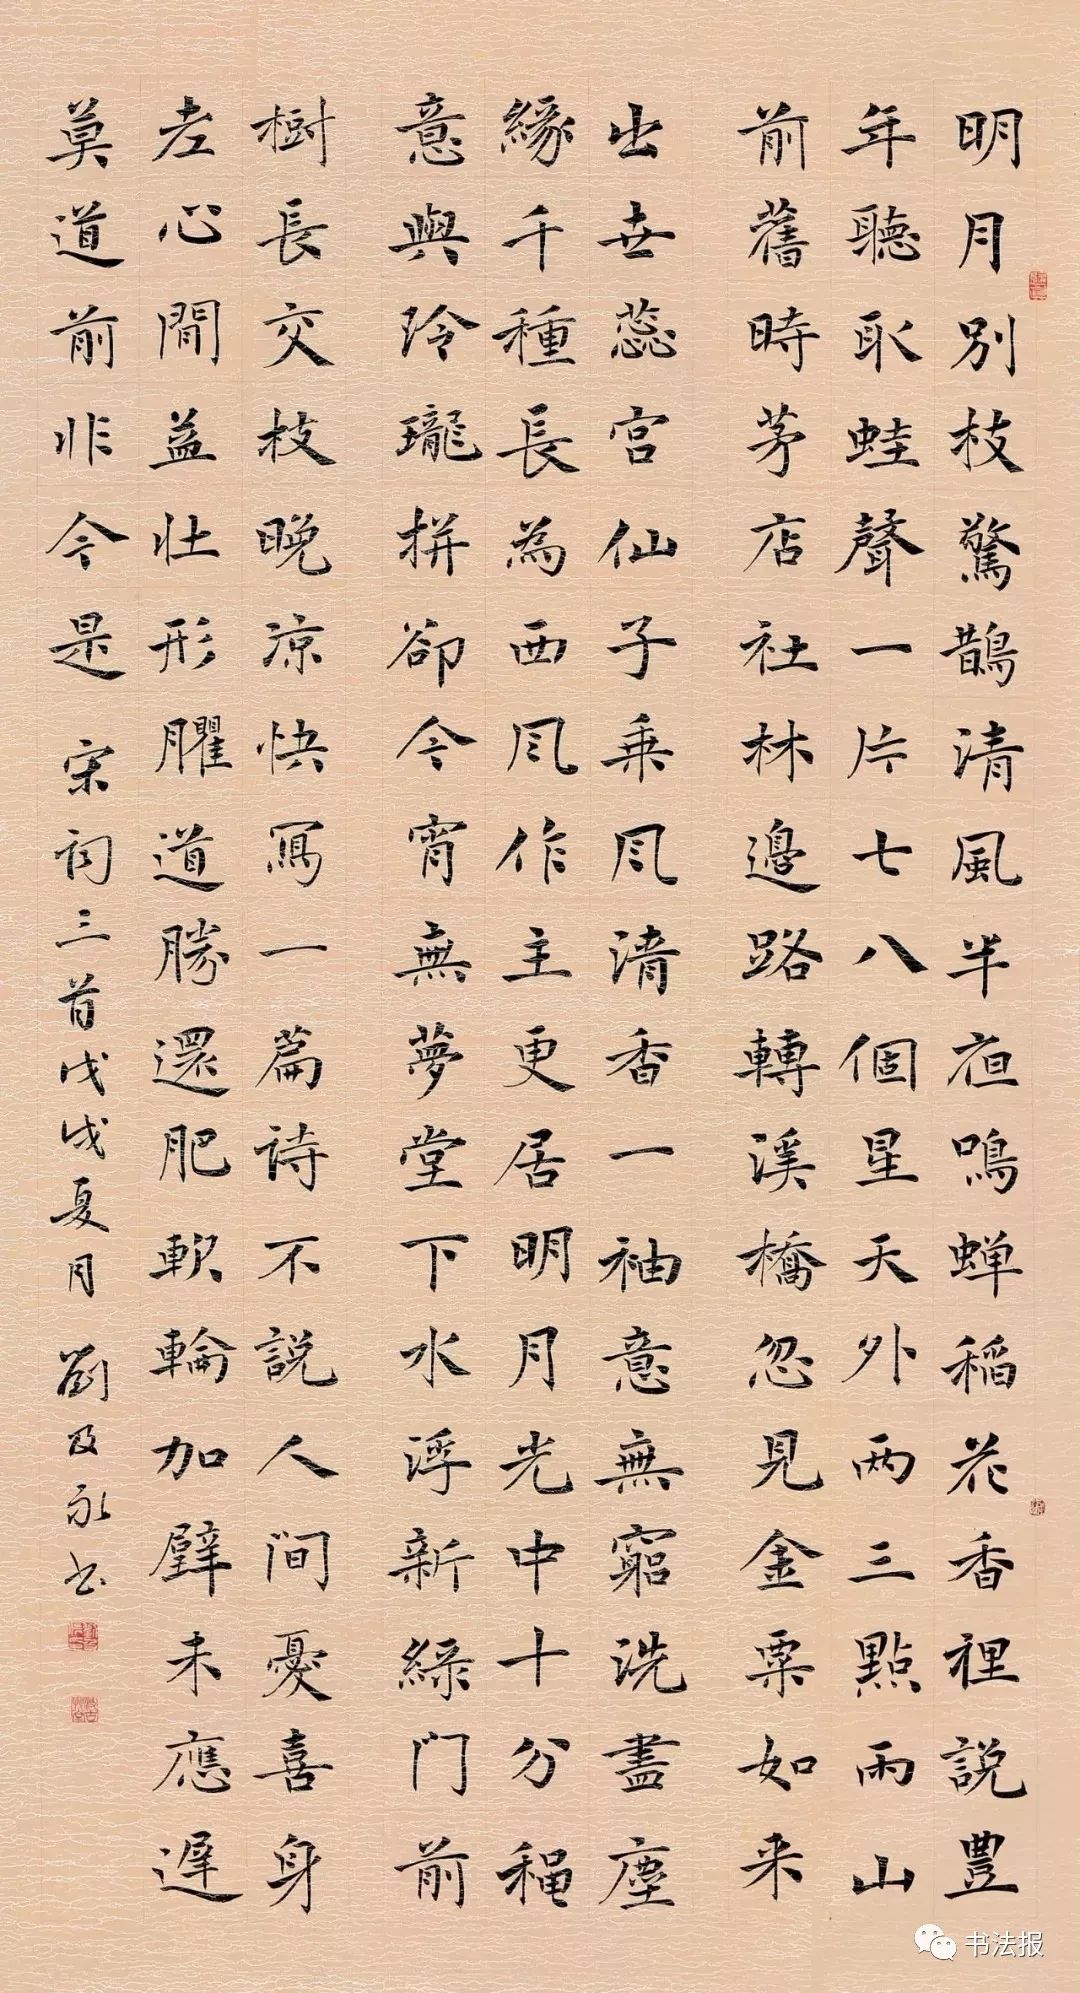 明月別枝驚鵲清風半夜鳴蝉稻花香裡說豊
年聽取蛙聲一片七八個星天外兩三點雨山
前舊時茅店社林邊路轉溪橋忽見金粟如来
出世蕊宮仙子乘風清香一袖意無窮洗盡塵
緣千種長為西風作主更居明月光中十分穐
意與玲瓏拼卻今宵無夢堂下水浮新綠门前
樹長交枝晚涼快寫一篇詩不說人间憂喜身
老心閒益壯形臞道勝還肥軟輪加璧未應遲
莫道前非今是 宋詞三首戊戌夏月 劉及永書
书法报